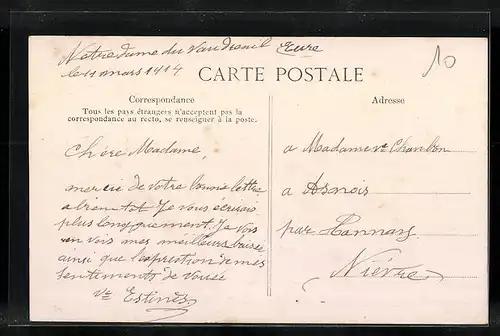 Notre dame du Vaudreuil Eure
le 11 mars 1914
10
CARTE POSTALE
Correspondance
Tous les pays étrangers n'acceptent pas la
correspondance au recto, se renseigner à la poste.
Chére Madame,
mercie de votre bonne lettre
a bien tot Je vous écrirais
plus longuement. Je vois
en vois mes meilleurs baisés
ainsi que l'exprestion de mes
sentiments de vouée
Vve Estines
Adresse
a Madame ve Chambon
a Asnois
par Tannay
Nièvre